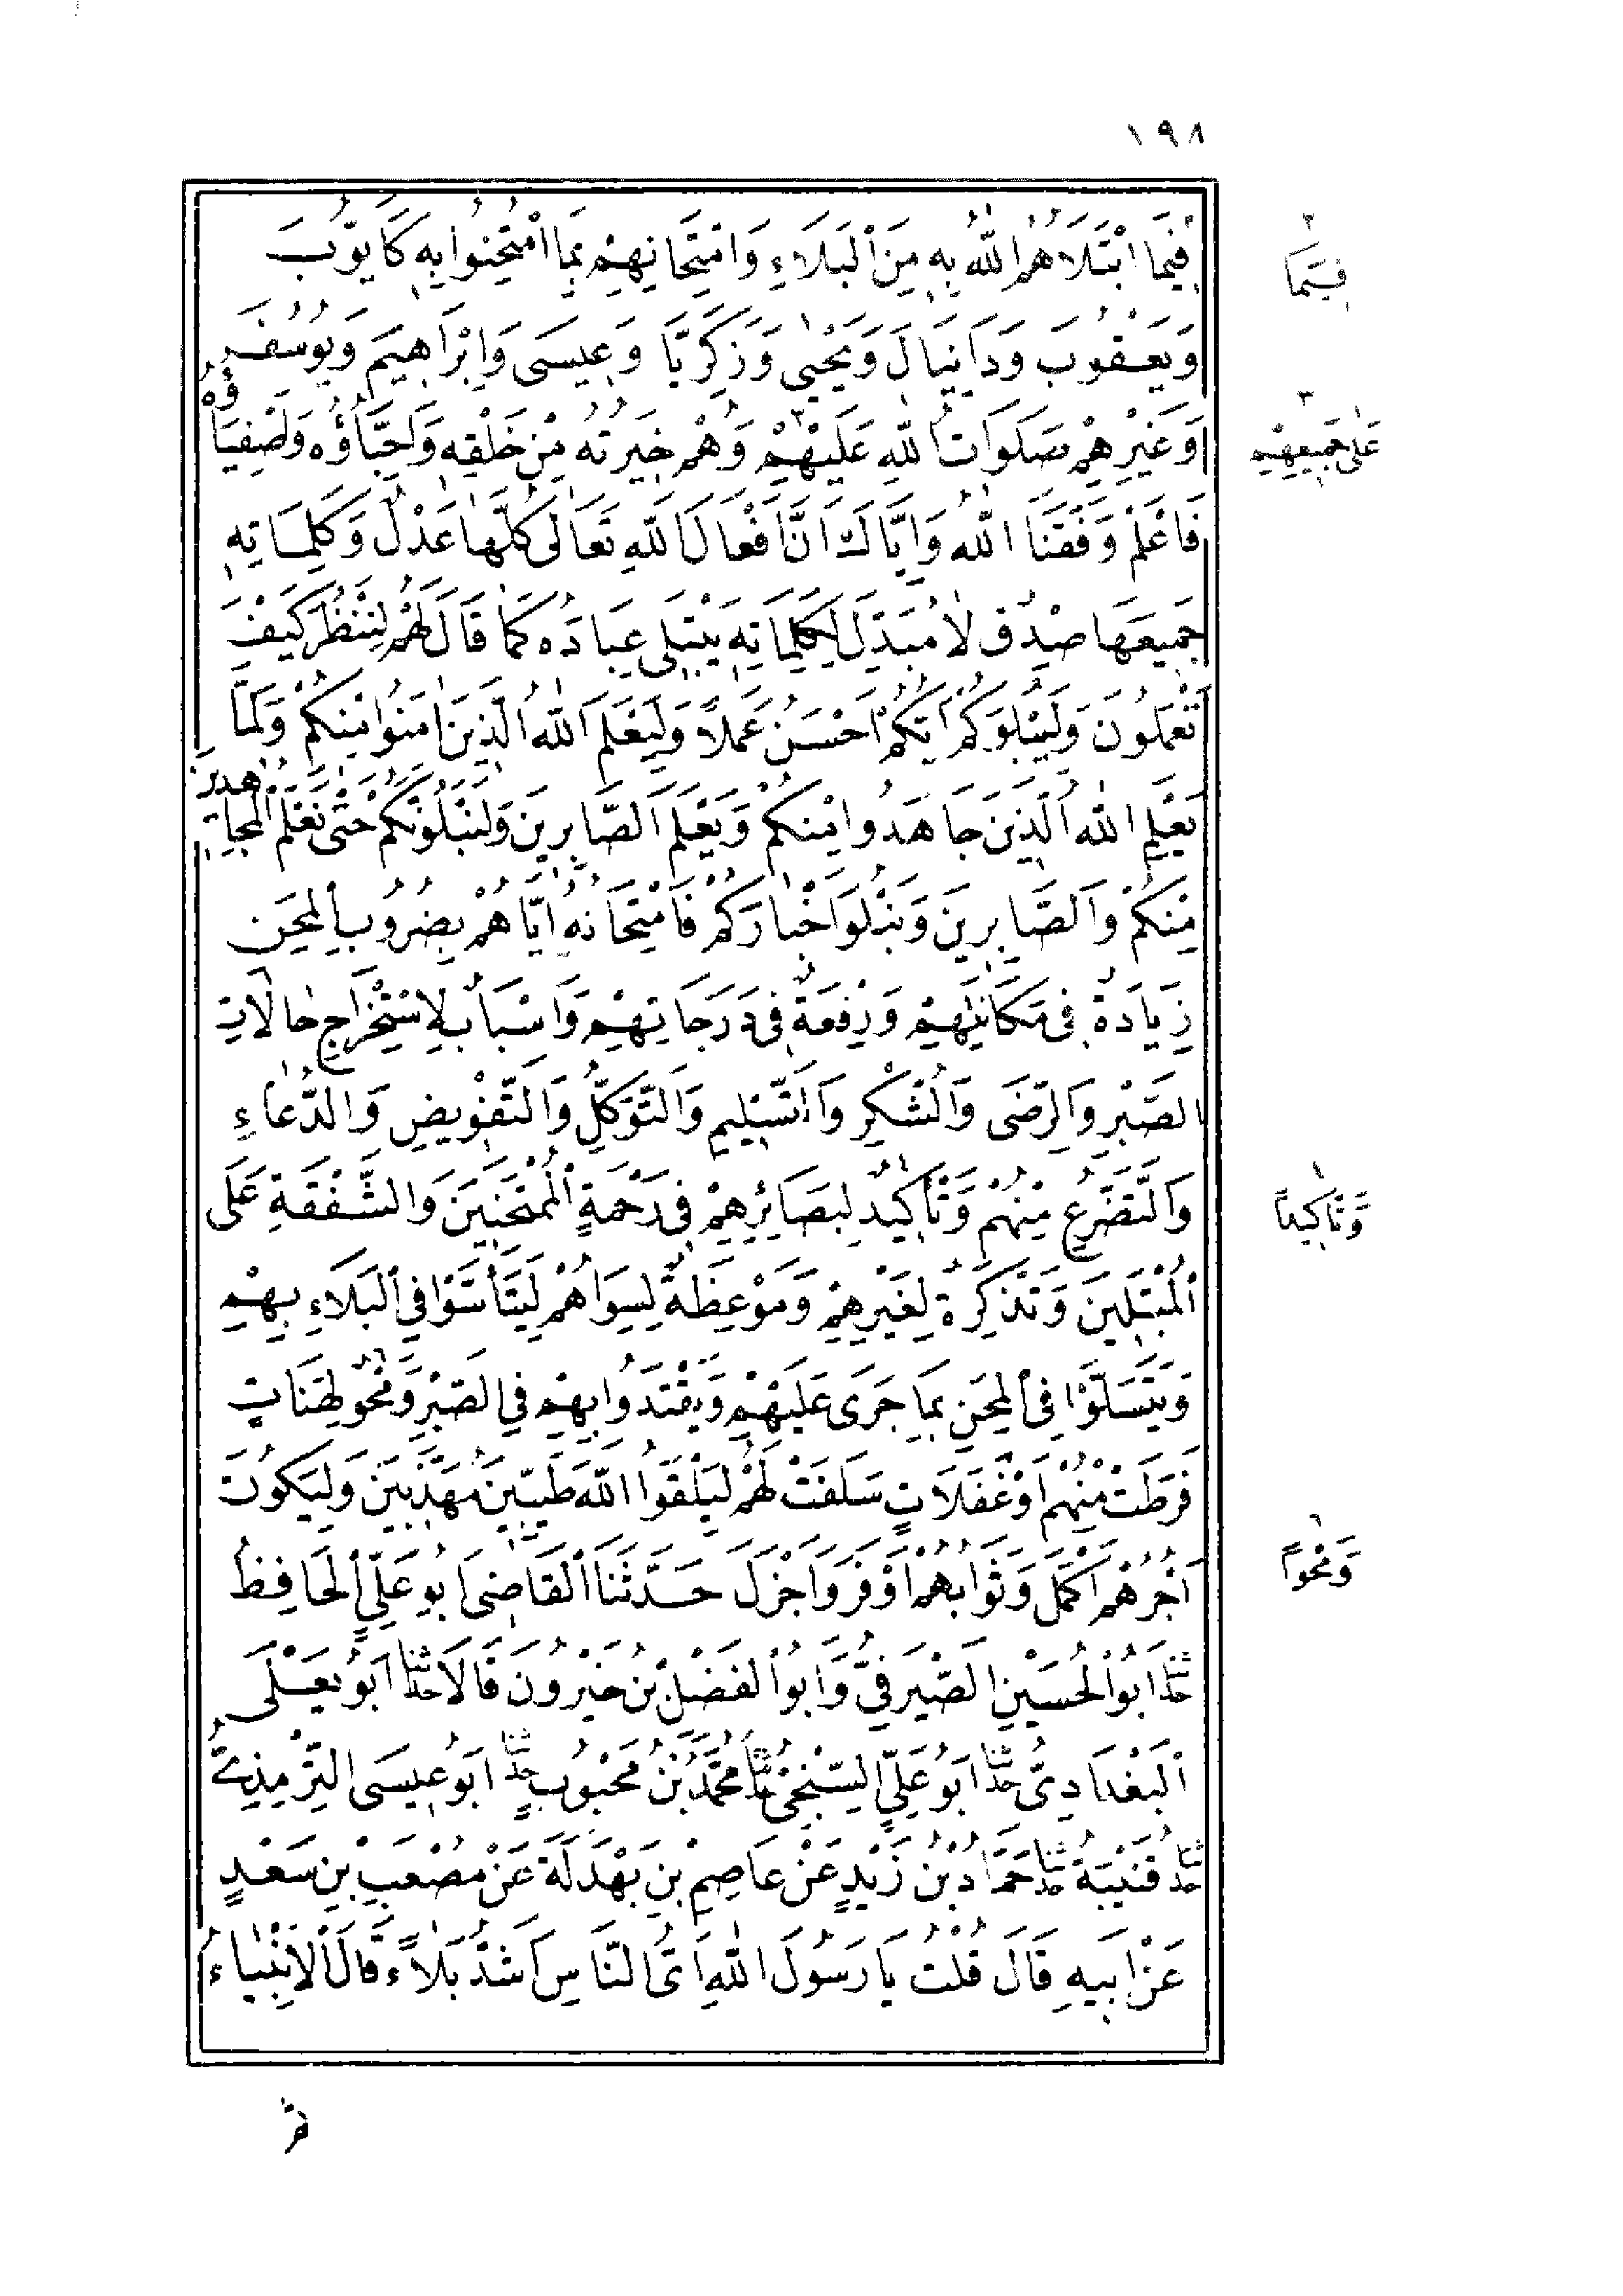 ١٩٨
فِيمَا ابْتَلَاهُمُ اللّٰهُ بِهِ مِنَ الْبَلَاءِ وَامْتِحَانِهِمْ بِمَا امْتُحِنُوا بِهِ كَاَيُّوبَ
فِيمَا
وَيَعْقُوبَ وَدَانِيَالَ وَيَحْيٰى وَزَكَرِيَّا وَعِيسَى وَاِبْرَاهِيمَ وَيُوسُفَ
وَغَيْرِهِمْ صَلَوَاتُ اللّٰهِ عَلَيْهِمْ وَهُمْ خِيَرَتُهُ مِنْ خَلْقِهِ وَاَحِبَّاؤُهُ وَاَصْفِيَاؤُهُ
عَلٰى جَمِيعِهِمْ
فَاعْلَمْ وَفَّقَنَا اللّٰهُ وَاِيَّاكَ اَنَّ اَفْعَالَ اللّٰهِ تَعَالٰى كُلَّهَا عَدْلٌ وَكَلِمَاتِهِ
جَمِيعَهَا صِدْقٌ لَا مُبَدِّلَ لِكَلِمَاتِهِ يَبْتَلِى عِبَادَهُ كَمَا قَالَ لَهُمْ لِنَنْظُرَ كَيْفَ
تَعْمَلُونَ وَلِيَبْلُوَكُمْ اَيُّكُمْ اَحْسَنُ عَمَلًا وَلِيَعْلَمَ اللّٰهُ الَّذِينَ اٰمَنُوا مِنْكُمْ وَلَمَّا
يَعْلَمِ اللّٰهُ الَّذِينَ جَاهَدُوا مِنْكُمْ وَيَعْلَمَ الصَّابِرِينَ وَلَنَبْلُوَنَّكُمْ حَتّٰى نَعْلَمَ الْمُجَاهِدِينَ
مِنْكُمْ وَالصَّابِرِينَ وَنَبْلُوَ اَخْبَارَكُمْ فَامْتِحَانُهُ اِيَّاهُمْ بِضُرُوبِ الْمِحَنِ
زِيَادَةٌ فِى مَكَانَتِهِمْ وَرِفْعَةٌ فِى دَرَجَاتِهِمْ وَاَسْبَابٌ لِاسْتِخْرَاجِ حَالَاتِ
الصَّبْرِ وَالرِّضَى وَالشُّكْرِ وَالتَّسْلِيمِ وَالتَّوَكُّلِ وَالتَّفْوِيضِ وَالدُّعَاءِ
وَالتَّضَرُّعِ مِنْهُمْ وَتَأْكِيدٌ لِبَصَائِرِهِمْ فِى رَحْمَةِ الْمُمْتَحَنِينَ وَالشَّفَقَةِ عَلَى
وَتَأْكِيداً
الْمُبْتَلِينَ وَتَذْكِرَةٌ لِغَيْرِهِمْ وَمَوْعِظَةٌ لِسِوَاهُمْ لِيَتَأَسَّوْا فِى الْبَلَاءِ بِهِمْ
وَيَتَسَلَّوْا فِى الْمِحَنِ بِمَا جَرَى عَلَيْهِمْ وَيَقْتَدُوا بِهِمْ فِى الصَّبْرِ وَمَحْوٌ لِهَنَاتٍ
فَرَطَتْ مِنْهُمْ اَوْ غَفَلَاتٍ سَلَفَتْ لَهُمْ لِيَلْقَوُا اللّٰهَ طَيِّبِينَ مُهَذَّبِينَ وَلِيَكُونَ
وَمَحْواً
اَجْرُهُمْ اَكْمَلَ وَثَوَابُهُمْ اَوْفَرَ وَاَجْزَلَ حَدَّثَنَا الْقَاضِى اَبُو عَلِيٍّ الْحَافِظُ
حدثنا اَبُو الْحُسَيْنِ الصَّيْرَفِىُّ وَاَبُو الْفَضْلِ بْنُ خَيْرُونَ قَالَا حدثنا اَبُو يَعْلَى
الْبَغْدَادِىُّ حدثنا اَبُو عَلِيٍّ السِّنْجِىُّ حدثنا مُحَمَّدُ بْنُ مَحْبُوبٍ حدثنا اَبُو عِيسَى التِّرْمِذِىُّ
حدثنا قُتَيْبَةُ حدثنا حَمَّادُ بْنُ زَيْدٍ عَنْ عَاصِمِ بْنِ بَهْدَلَةَ عَنْ مُصْعَبِ بْنِ سَعْدٍ
عَنْ اَبِيهِ قَالَ قُلْتُ يَا رَسُولَ اللّٰهِ اَىُّ النَّاسِ اَشَدُّ بَلَاءً قَالَ الْاَنْبِيَاءُ